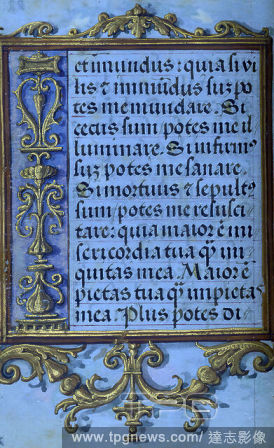 et mundus: quia si vi
lis ⁊ immũdus suz po
tes me mundare. Si
cecus sum potes me il
luminare. Si infirm⁹
suz potes me sanare.
Si mortuus ⁊ sepult⁹
sum potes me resusci
tare: quia maior ẽ mi
sericordia tua q̃ ini
quitas mea. Maior ẽ
pietas tua q̃ impietas
mea. Plus potes di
www.tpgnews.com 達志影像